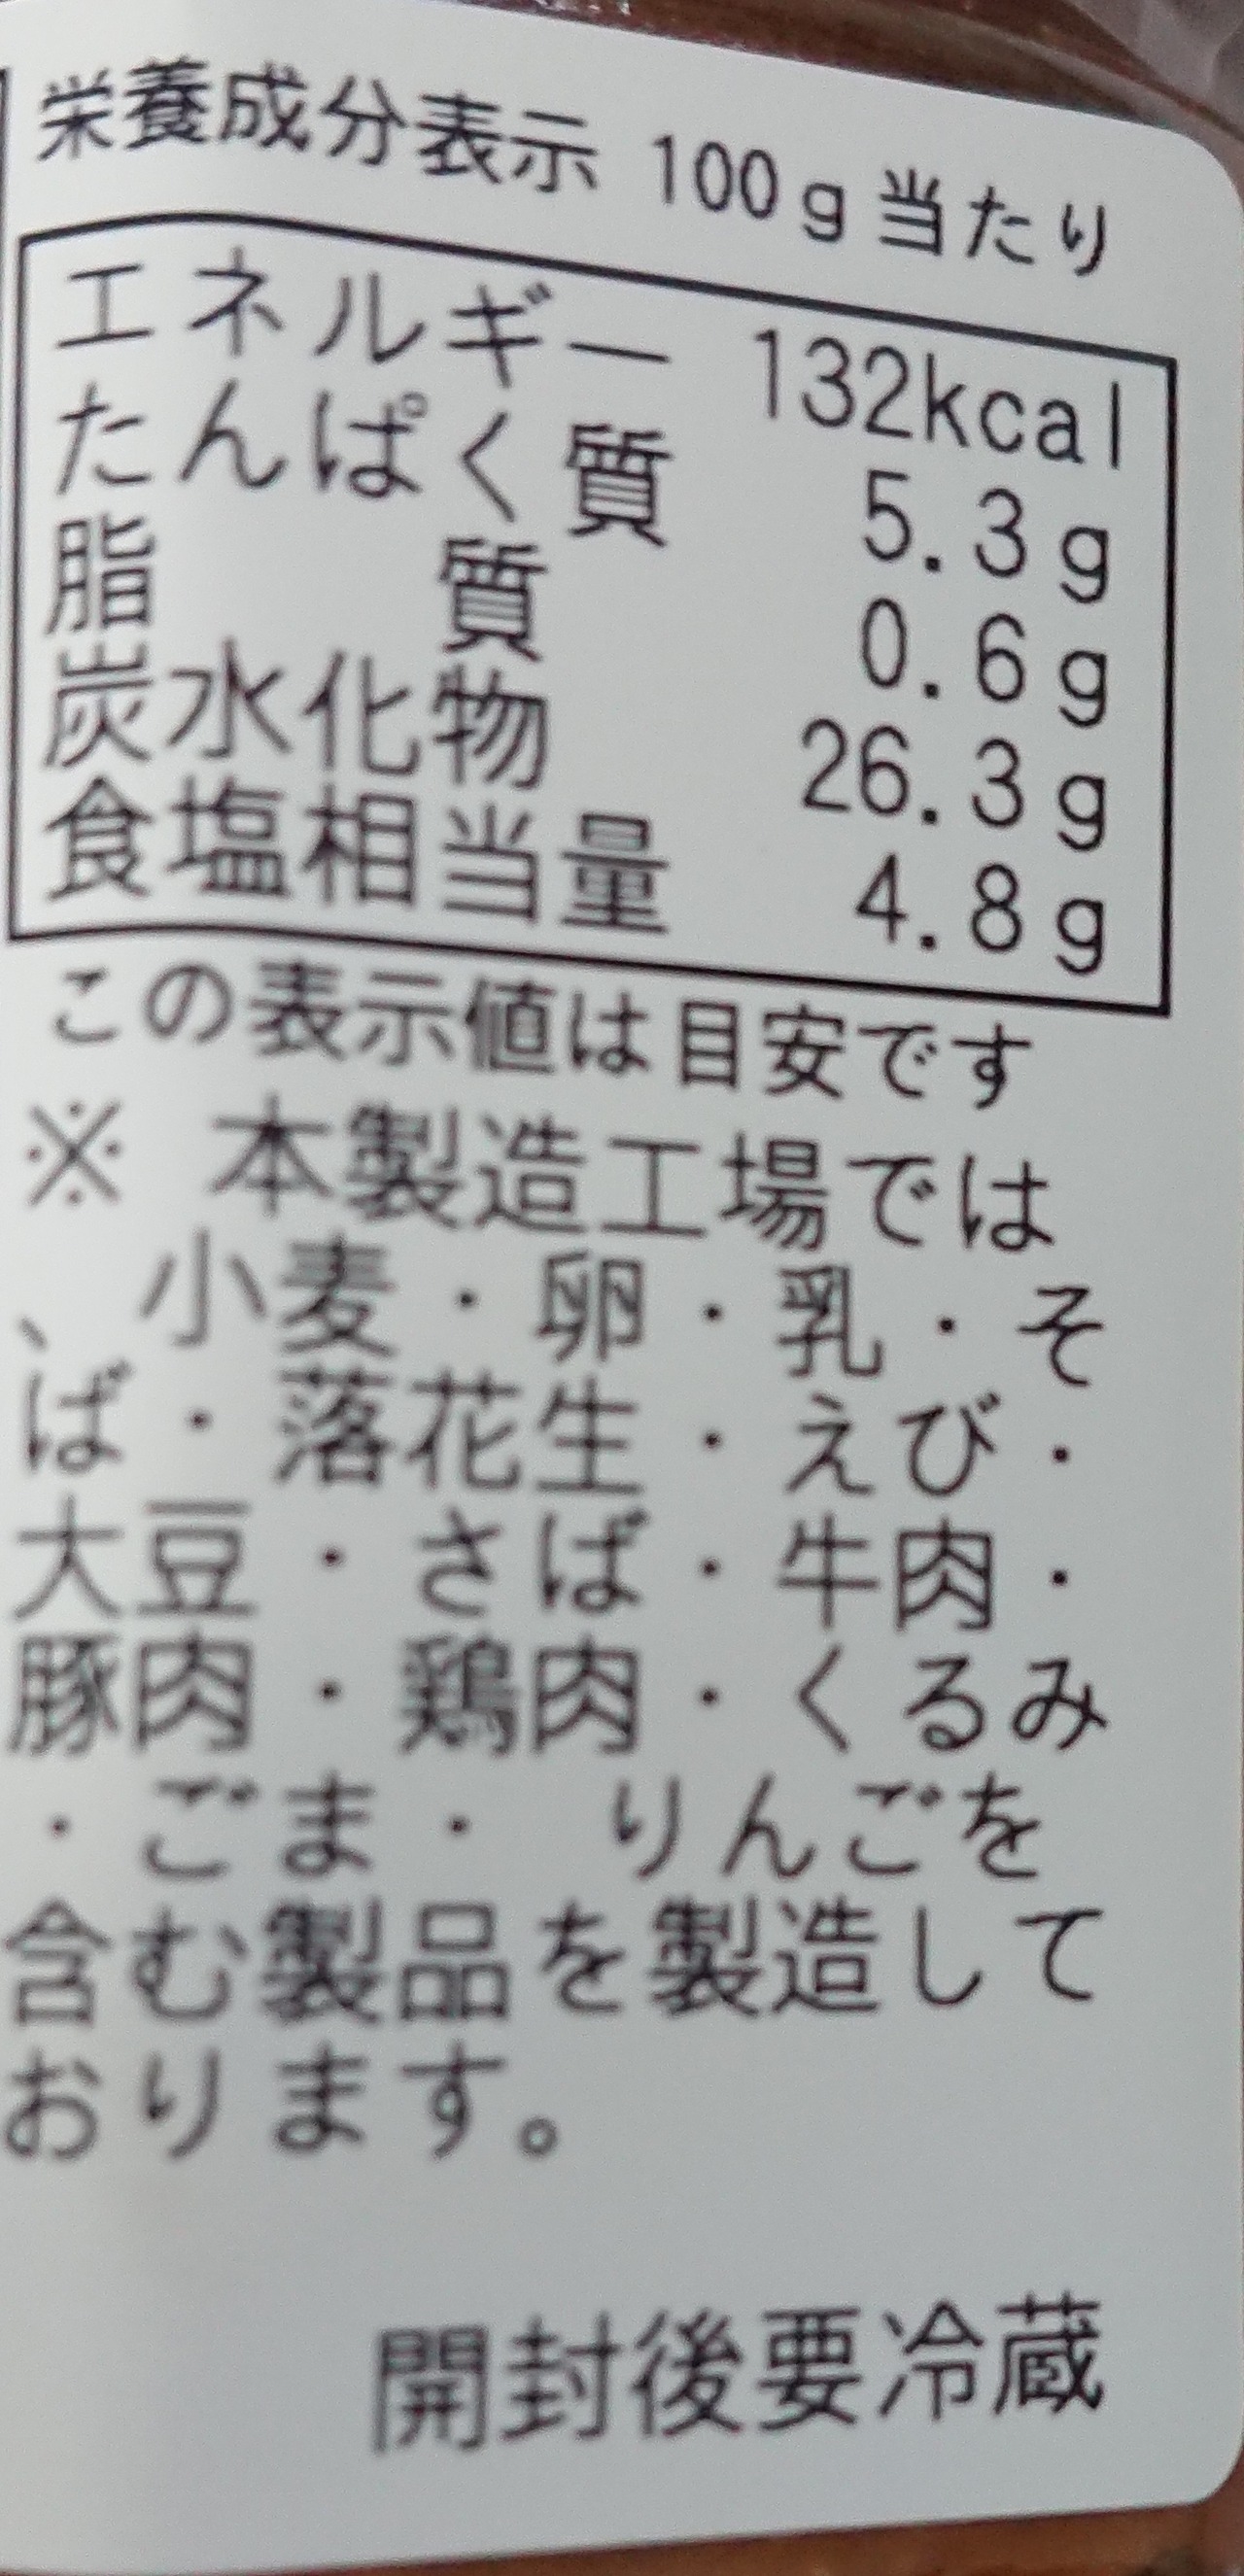 栄養成分表示 100g当たり
エネルギー 132kcal
たんぱく質 5.3g
脂質 0.6g
炭水化物 26.3g
食塩相当量 4.8g
この表示値は目安です
※ 本製造工場では
、小麦・卵・乳・そ
ば・落花生・えび・
大豆・さば・牛肉・
豚肉・鶏肉・くるみ
・ごま・ りんごを
含む製品を製造して
おります。
開封後要冷蔵